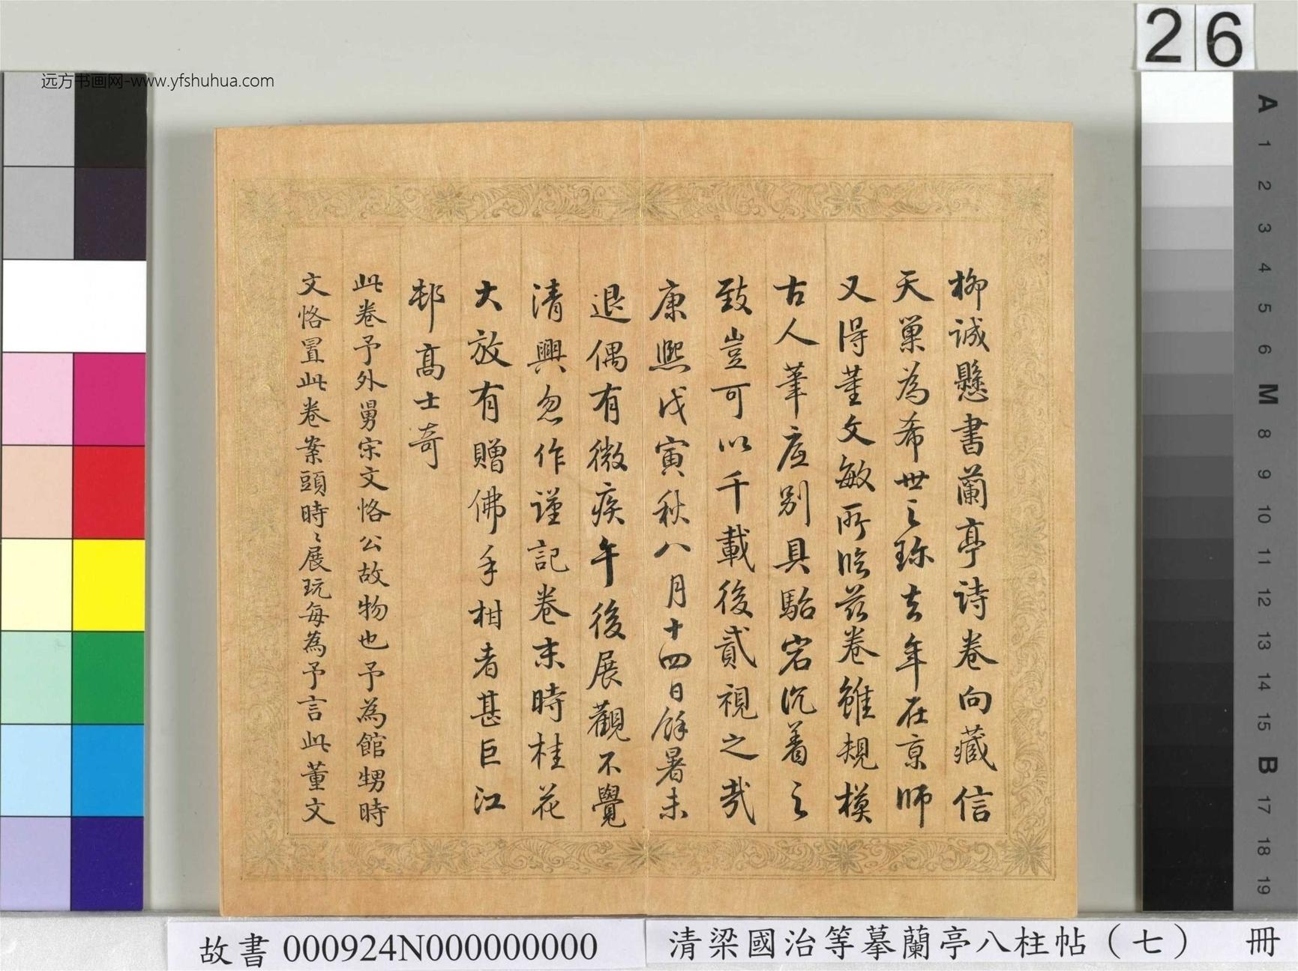 远方书画网-www.yfshuhua.com
26
柳誠懸書蘭亭詩卷向藏信
天巢為希世之珎去年在京師
又得董文敏所臨茲卷雖規模
古人筆底別具駘宕沉着之
致豈可以千載後貳視之哉
康熙戊寅秋八月十四日餘暑未
退偶有微疾午後展觀不覺
清興忽作謹記卷末時桂花
大放有贈佛手柑者甚巨江
邨高士竒
此卷予外舅宋文恪公故物也予為館甥時
文恪置此卷案頭時〻展玩每為予言此董文
A
1
2
3
4
5
6
M
8
9
10
11
12
13
14
15
B
17
18
19
故書 000924N000000000
清梁國治等摹蘭亭八柱帖（七） 冊